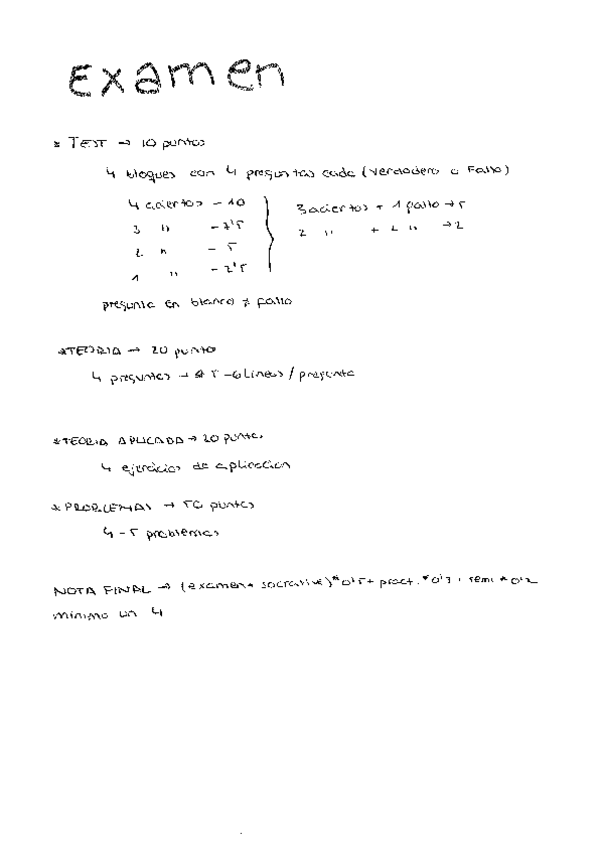 Examen
* TEST → 10 puntos
4 bloques con 4 preguntas cada (Verdadero o Fallo)
4 aciertos - 10
3 " - 7'5
2 " - 5
1 " - 2'5
3 aciertos + 1 fallo → 5
2 " + 1 " → 2
pregunta en blanco ≠ fallo
*TEORIA → 20 punto
4 preguntas → 5 - 6 lineas / pregunta
*TEORIA APLICADA → 20 puntos
4 ejercicios de aplicacion
*PROBLEMAS → 50 puntos
4 - 5 problemas
NOTA FINAL → (examen + socrative)*0'5 + pract.*0'3 + semi *0'2
minimo un 4